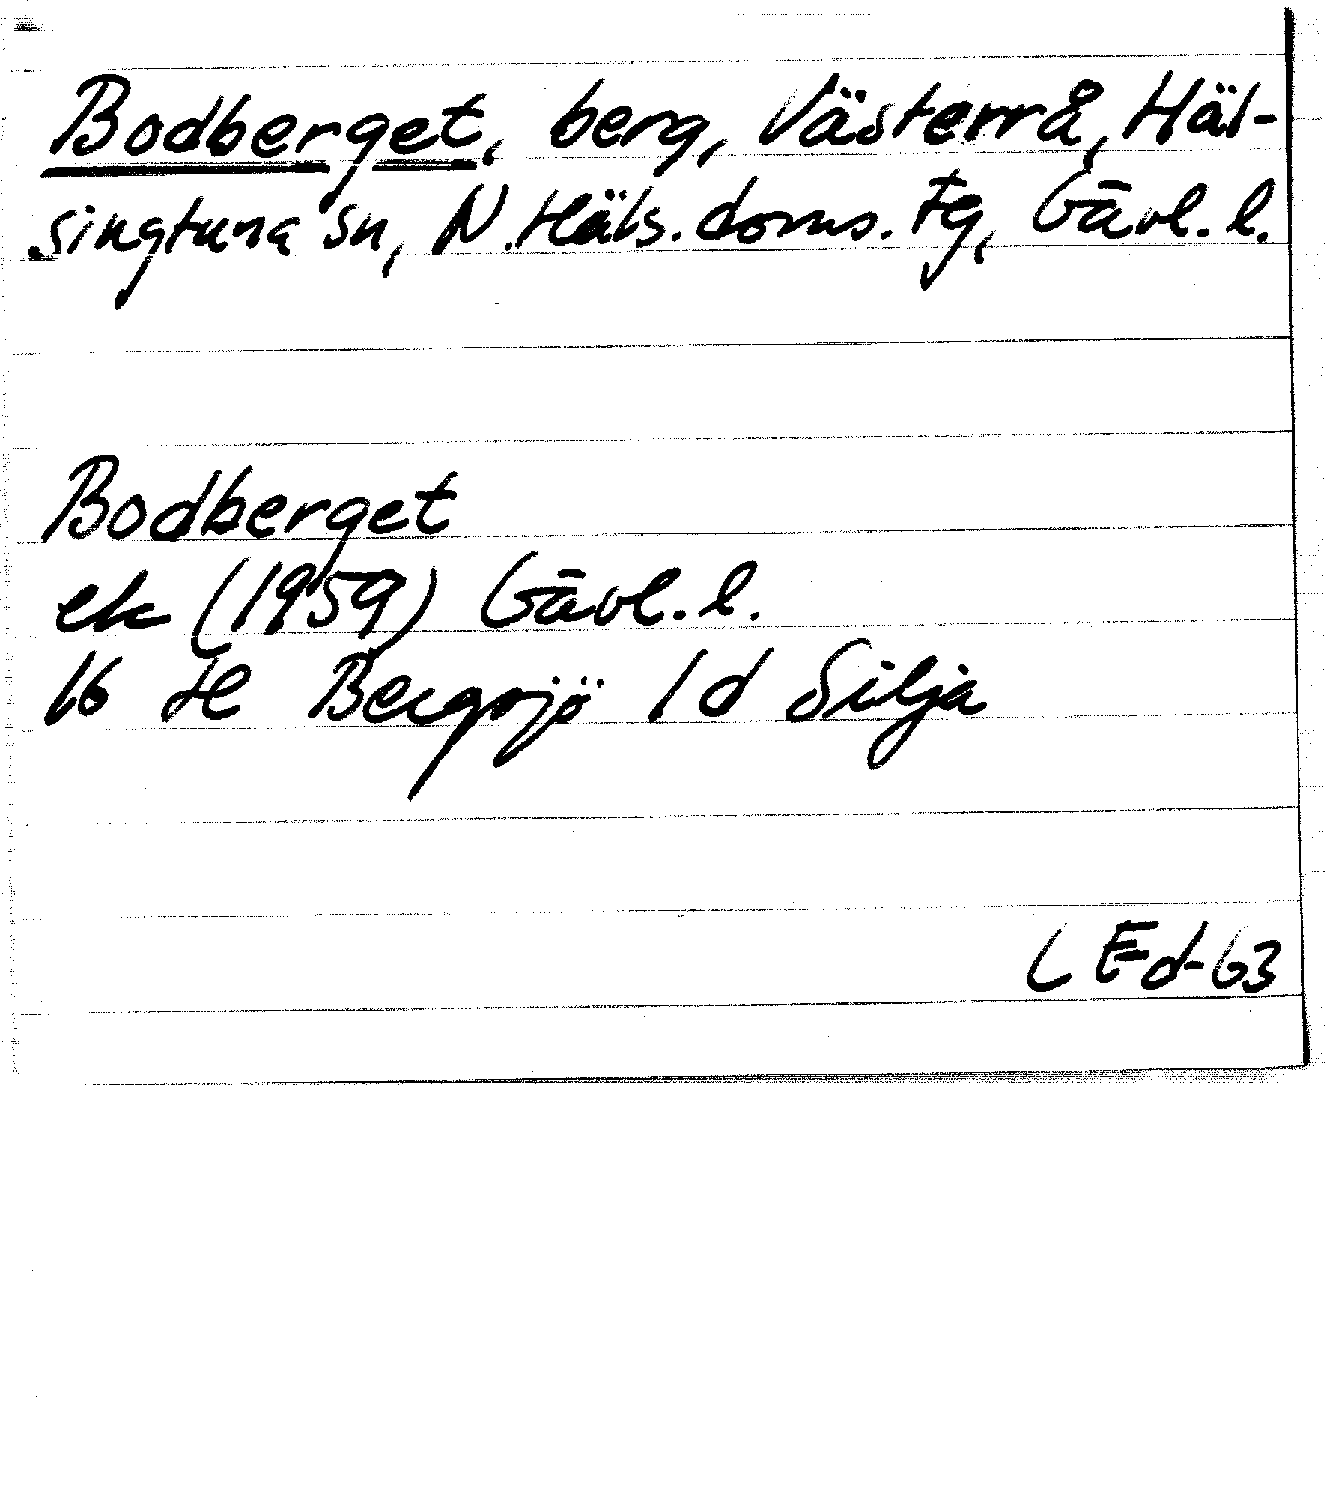 Bodberget, berg, Västerrå, Häl-
singtuna sn, N. Häls. doms. Fg, Gävl. l.
Bodberget
ek (1959) Gävl. l.
16 H Bergsjö 1d Silja
L Ed-63